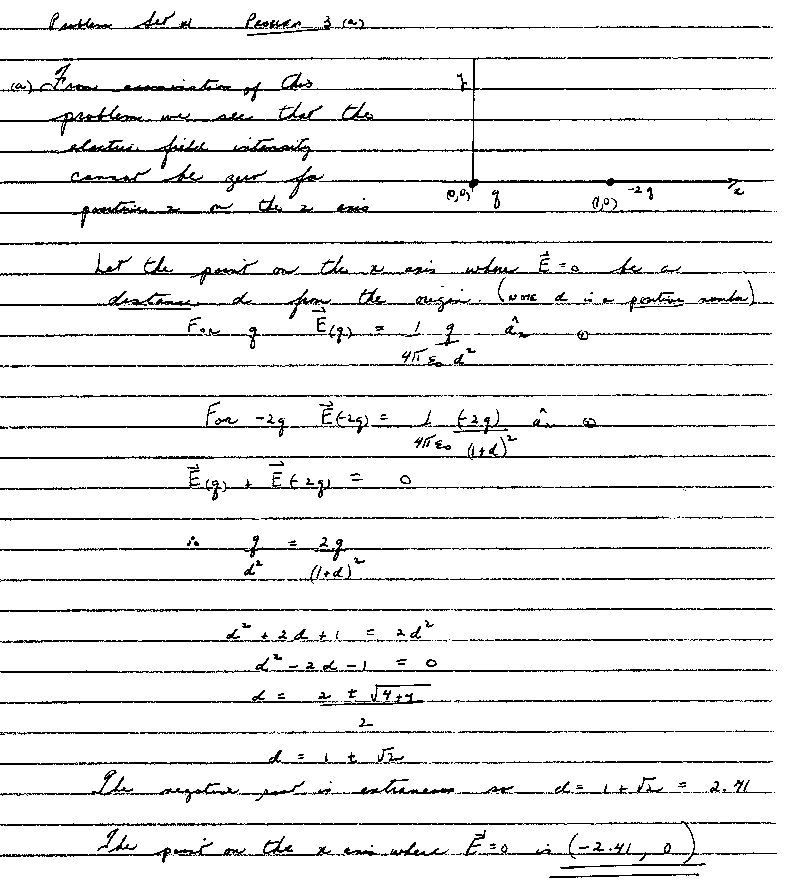 Problem Set #1 Problem 3 (a)
(a) From examination of this
problem we see that the
electric field intensity
cannot be zero for
positive x on the x axis
y
(0,0) q (1,0) -2q x
Let the point on the x axis where E⃗ = 0 be a
distance d from the origin. (NOTE d is a positive number)
For q E⃗(q) = 1/(4πε₀) q/d² âₓ ①
For -2q E⃗(-2q) = 1/(4πε₀) (-2q)/(1+d)² âₓ ②
E⃗(q) + E⃗(-2q) = 0
∴ q/d² = 2q/(1+d)²
d² + 2d + 1 = 2d²
d² - 2d - 1 = 0
d = (2 ± √(4+4))/2
d = 1 ± √2
The negative root is extraneous so d = 1 + √2 = 2.41
The point on the x axis where E⃗ = 0 is (-2.41, 0)